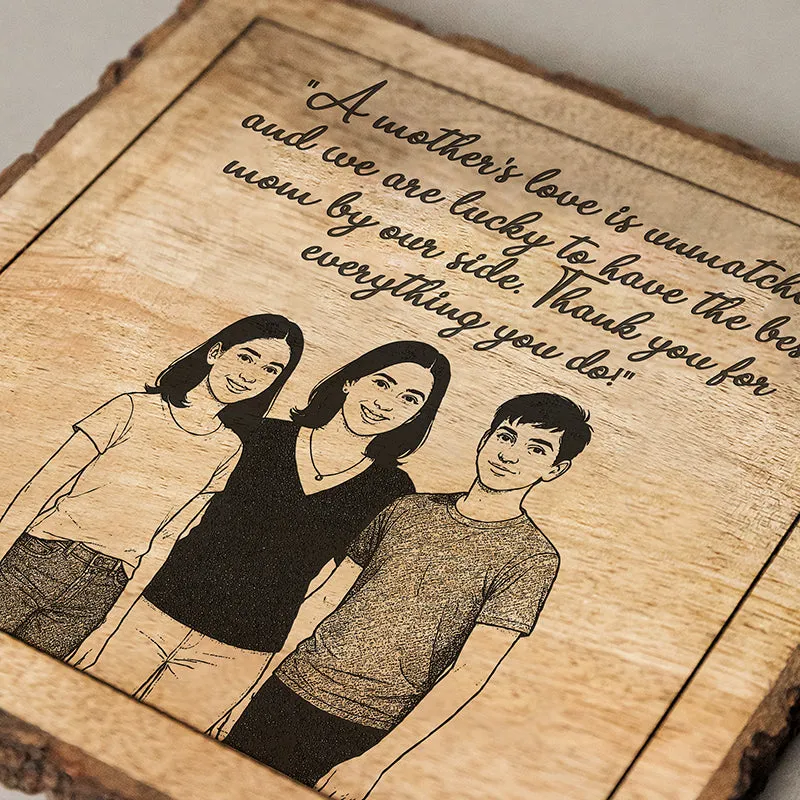 "A mother's love is unmatche
and we are lucky to have the bes
mom by our side. Thank you for
everything you do!"